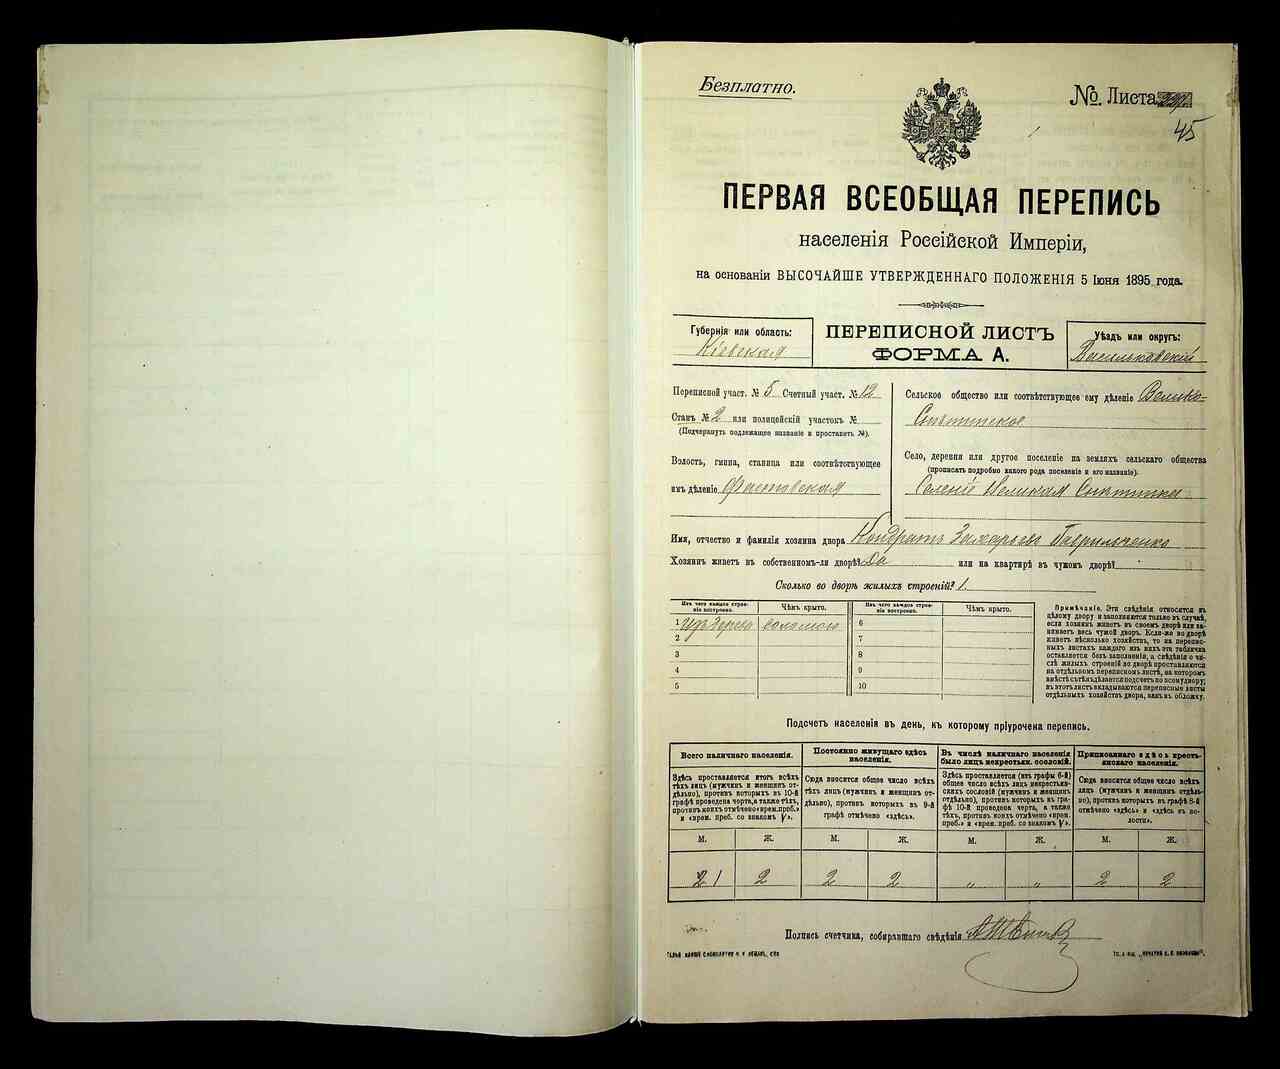 Безплатно.
№. Листа
45
ПЕРВАЯ ВСЕОБЩАЯ ПЕРЕПИСЬ
населенія Россійской Имперіи,
на основаніи ВЫСОЧАЙШЕ УТВЕРЖДЕННАГО ПОЛОЖЕНІЯ 5 Іюня 1895 года.
Губернія или область:
Кіевская
ПЕРЕПИСНОЙ ЛИСТЪ
ФОРМА А.
Уѣздъ или округъ:
Васильковскій
Переписной участ. № 5 Счетный участ. № 12
Станъ № 2 или полицейскій участокъ №
(Подчеркнуть подлежащее названіе и проставить №).
Волость, гмина, станица или соотвѣтствующее
имъ дѣленіе Фастовская
Сельское общество или соотвѣтствующее ему дѣленіе Велико-
Снѣтинское
Село, деревня или другое поселеніе на земляхъ сельскаго общества
(прописать подробно какого рода поселеніе и его названіе).
Селеніе Великая Снѣтинка
Имя, отчество и фамилія хозяина двора Кондратъ Захарьевъ Гаврильченко
Хозяинъ живетъ въ собственномъ-ли дворѣ? Да или на квартирѣ въ чужомъ дворѣ?
Сколько во дворѣ жилыхъ строеній? 1.
Изъ чего каждое строе-
ніе построено.
Чѣмъ крыто.
Изъ чего каждое строе-
ніе построено.
Чѣмъ крыто.
1 Изъ дерева соломою
2
3
4
5
6
7
8
9
10
Примѣчаніе. Эти свѣдѣнія относятся къ
цѣлому двору и заполняются только въ случаѣ,
если хозяинъ живетъ въ своемъ дворѣ или за-
нимаетъ весь чужой дворъ. Если-же во дворѣ
живетъ нѣсколько хозяйствъ, то на перепис-
ныхъ листахъ каждаго изъ нихъ эта табличка
оставляется безъ заполненія, а свѣдѣнія о чи-
слѣ жилыхъ строеній во дворѣ проставляются
на отдѣльномъ переписномъ листѣ, на которомъ
вмѣстѣ съ тѣмъ дѣлается подсчетъ по всему двору;
въ этотъ листъ вкладываются переписные листы
отдѣльныхъ хозяйствъ двора, какъ въ обложку.
Подсчетъ населенія въ день, къ которому пріурочена перепись.
Всего наличнаго населенія.
Здѣсь проставляется итогъ всѣхъ
тѣхъ лицъ (мужчинъ и женщинъ от-
дѣльно), противъ которыхъ въ 10-й
графѣ проведена черта, а также тѣхъ,
противъ коихъ отмѣчено «врем. проб.»
и «врем. преб. со знакомъ V».
Постоянно живущаго здѣсь
населенія.
Сюда вносится общее число всѣхъ
тѣхъ лицъ (мужчинъ и женщинъ от-
дѣльно), противъ которыхъ въ 9-й
графѣ отмѣчено «здѣсь».
Въ числѣ наличнаго населенія
было лицъ некрестьян. сословій.
Здѣсь проставляется (изъ графы 6-й)
общее число всѣхъ лицъ некрестьян-
скихъ сословій (мужчинъ и женщинъ
отдѣльно), противъ которыхъ въ гра-
фѣ 10-й проведена черта, а также
тѣхъ, противъ коихъ отмѣчено «врем.
преб.» и «врем. преб. со знакомъ V».
Приписаннаго здѣсь кресть-
янскаго населенія.
Сюда вносится общее число всѣхъ
лицъ (мужчинъ и женщинъ отдѣль-
но), противъ которыхъ въ графѣ 8-й
отмѣчено «здѣсь» и «здѣсь въ во-
лости».
М. Ж. М. Ж. М. Ж. М. Ж.
2 1 2 2 2 „ „ 2 2
Подпись счетчика, собиравшаго свѣдѣнія